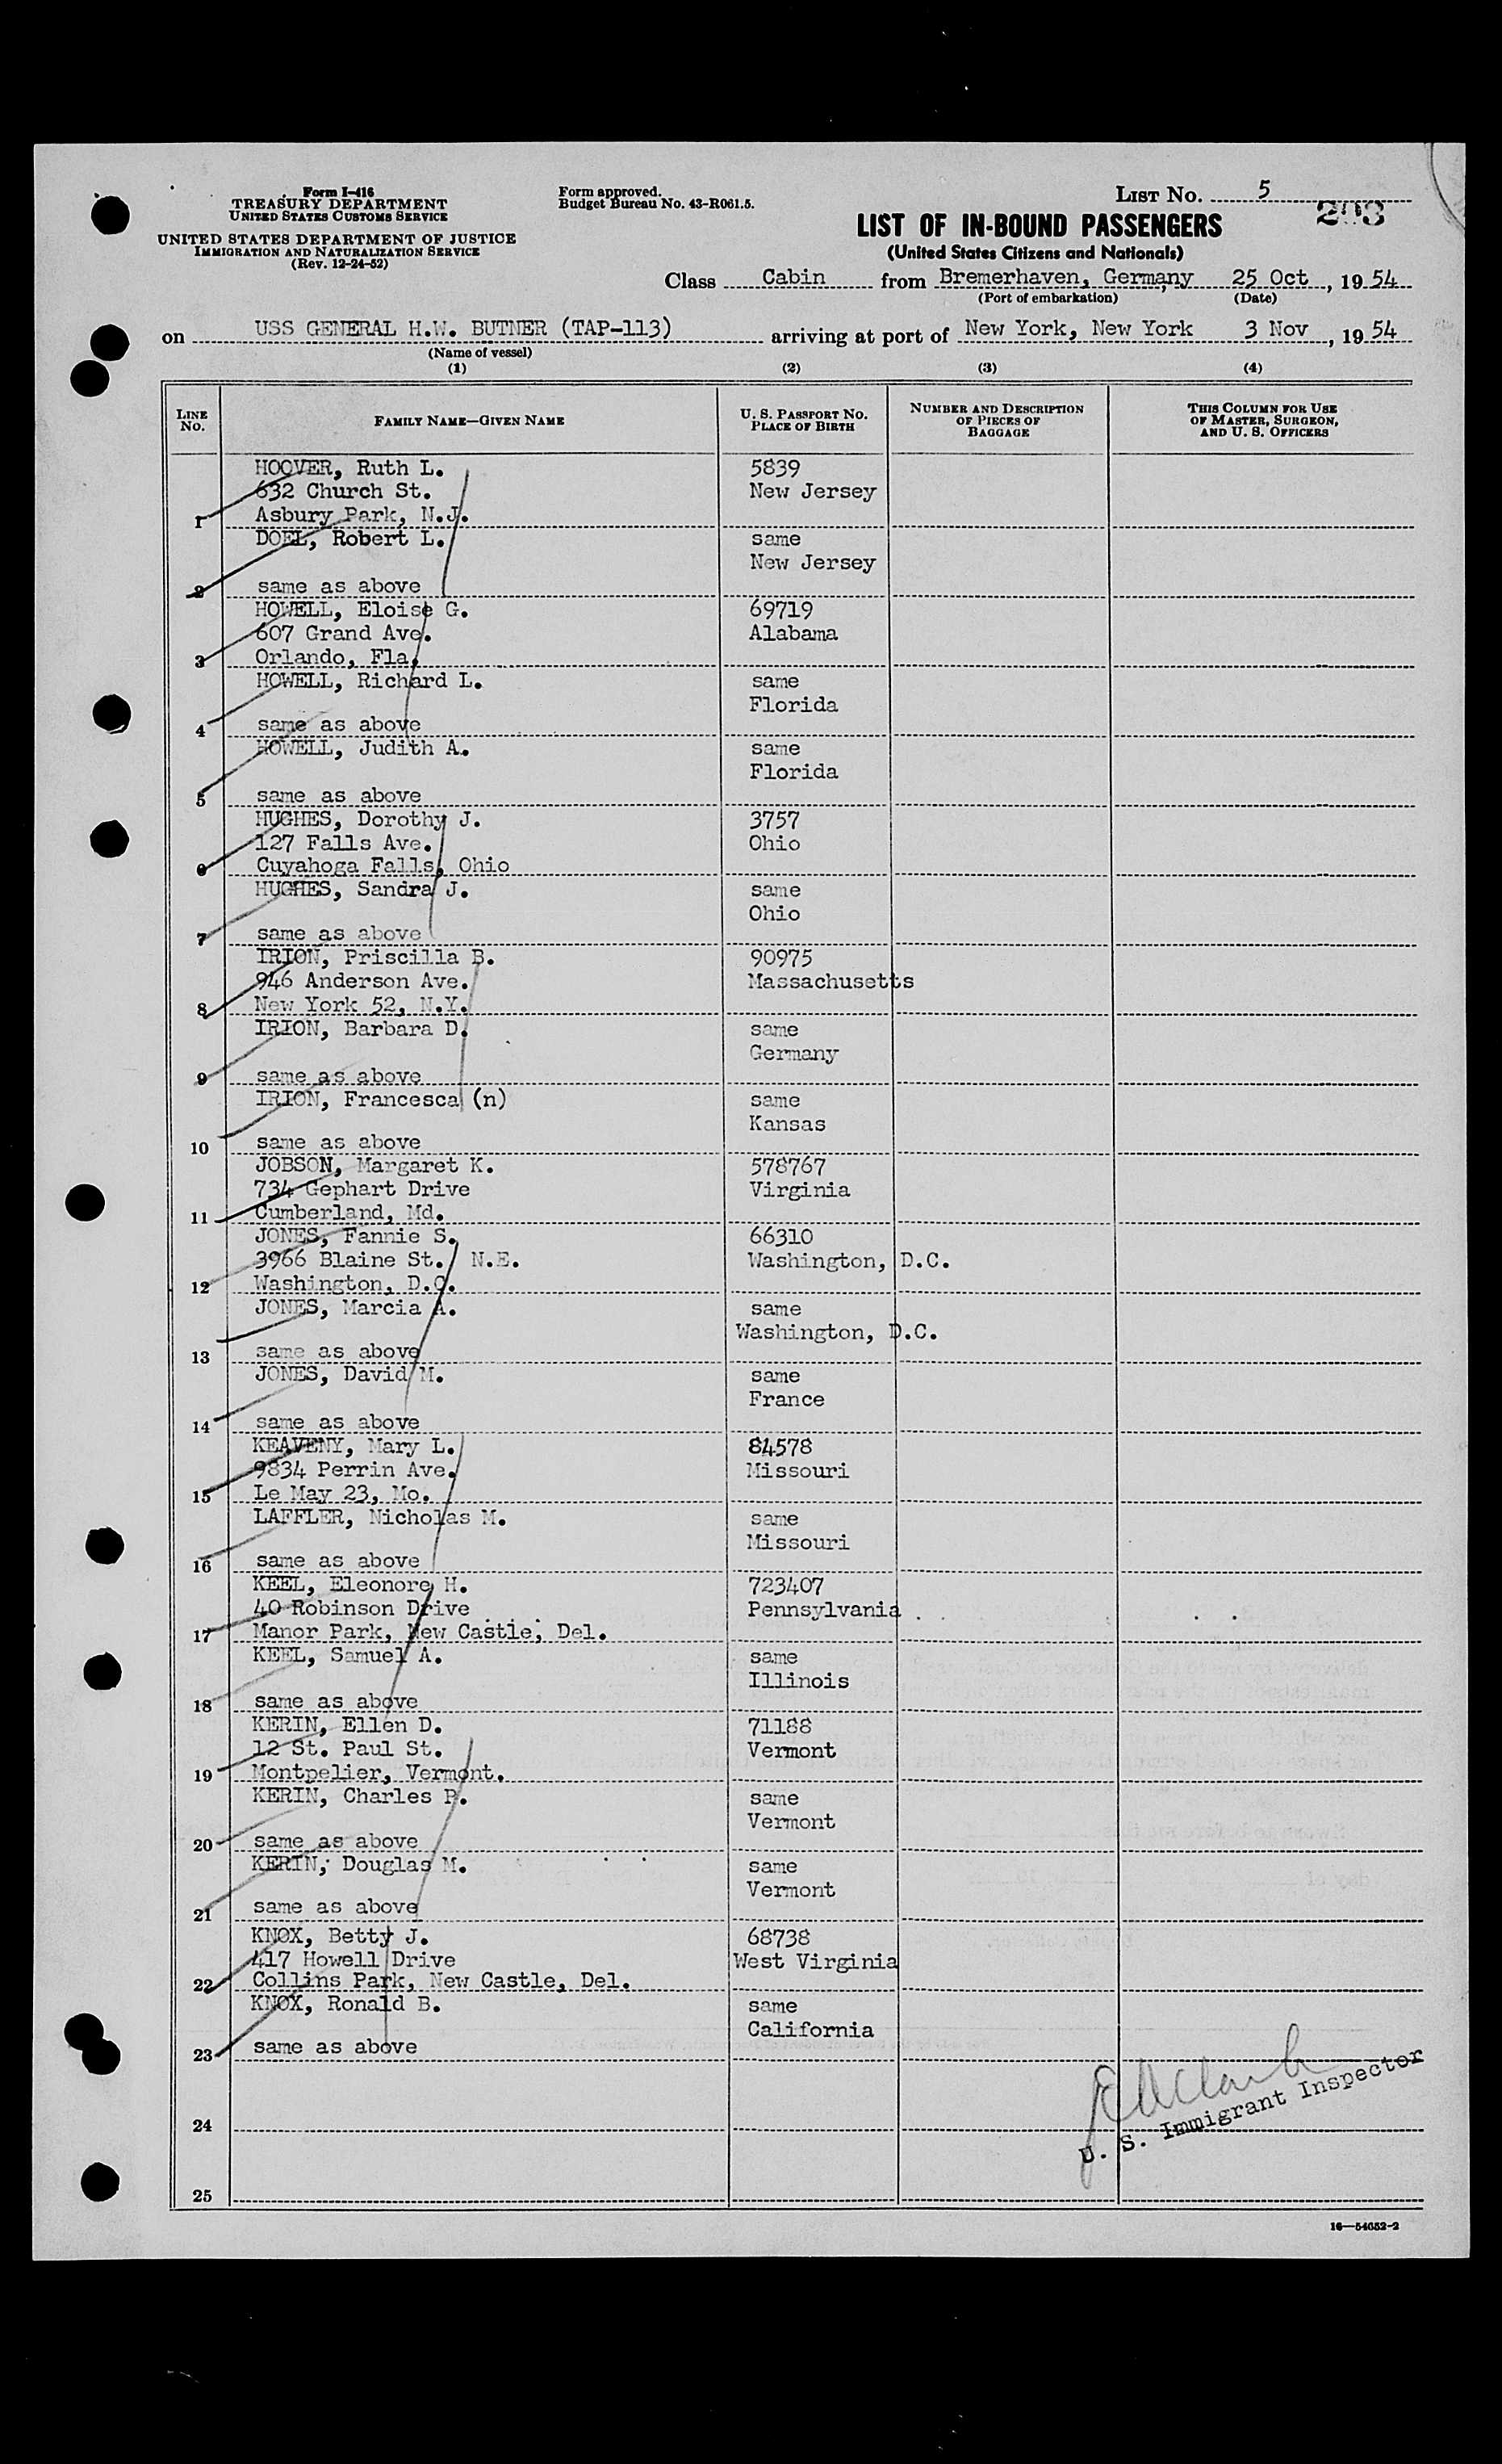 Form I-416
TREASURY DEPARTMENT
UNITED STATES CUSTOMS SERVICE
UNITED STATES DEPARTMENT OF JUSTICE
IMMIGRATION AND NATURALIZATION SERVICE
(Rev. 12-24-52)
Form approved.
Budget Bureau No. 43-R061.5.
LIST NO. 5
LIST OF IN-BOUND PASSENGERS
(United States Citizens and Nationals)
Class Cabin from Bremerhaven, Germany 25 Oct , 19 54
(Port of embarkation) (Date)
on USS GENERAL H.W. BUTNER (TAP-113) arriving at port of New York, New York 3 Nov , 19 54
(Name of vessel)
(1) (2) (3) (4)
LINE NO. FAMILY NAME—GIVEN NAME U. S. PASSPORT NO. PLACE OF BIRTH NUMBER AND DESCRIPTION OF PIECES OF BAGGAGE THIS COLUMN FOR USE OF MASTER, SURGEON, AND U. S. OFFICERS
HOOVER, Ruth L. 5839
632 Church St. New Jersey
1 Asbury Park, N.J.
DOEL, Robert L. same
New Jersey
2 same as above
HOWELL, Eloise G. 69719
607 Grand Ave. Alabama
3 Orlando, Fla.
HOWELL, Richard L. same
Florida
4 same as above
HOWELL, Judith A. same
Florida
5 same as above
HUGHES, Dorothy J. 3757
127 Falls Ave. Ohio
6 Cuyahoga Falls, Ohio
HUGHES, Sandra J. same
Ohio
7 same as above
IRION, Priscilla B. 90975
946 Anderson Ave. Massachusetts
8 New York 52, N.Y.
IRION, Barbara D. same
Germany
9 same as above
IRION, Francesca (n) same
Kansas
10 same as above
JOBSON, Margaret K. 578767
734 Gephart Drive Virginia
11 Cumberland, Md.
JONES, Fannie S. 66310
3966 Blaine St. N.E. Washington, D.C.
12 Washington, D.C.
JONES, Marcia A. same
Washington, D.C.
13 same as above
JONES, David M. same
France
14 same as above
KEAVENY, Mary L. 84578
9834 Perrin Ave. Missouri
15 Le May 23, Mo.
LAFFLER, Nicholas M. same
Missouri
16 same as above
KEEL, Eleonore H. 723407
40 Robinson Drive Pennsylvania
17 Manor Park, New Castle, Del.
KEEL, Samuel A. same
Illinois
18 same as above
KERIN, Ellen D. 71188
12 St. Paul St. Vermont
19 Montpelier, Vermont.
KERIN, Charles P. same
Vermont
20 same as above
KERIN, Douglas M. same
Vermont
21 same as above
KNOX, Betty J. 68738
417 Howell Drive West Virginia
22 Collins Park, New Castle, Del.
KNOX, Ronald B. same
California
23 same as above
24
U. S. Immigrant Inspector
25
16—54652-2